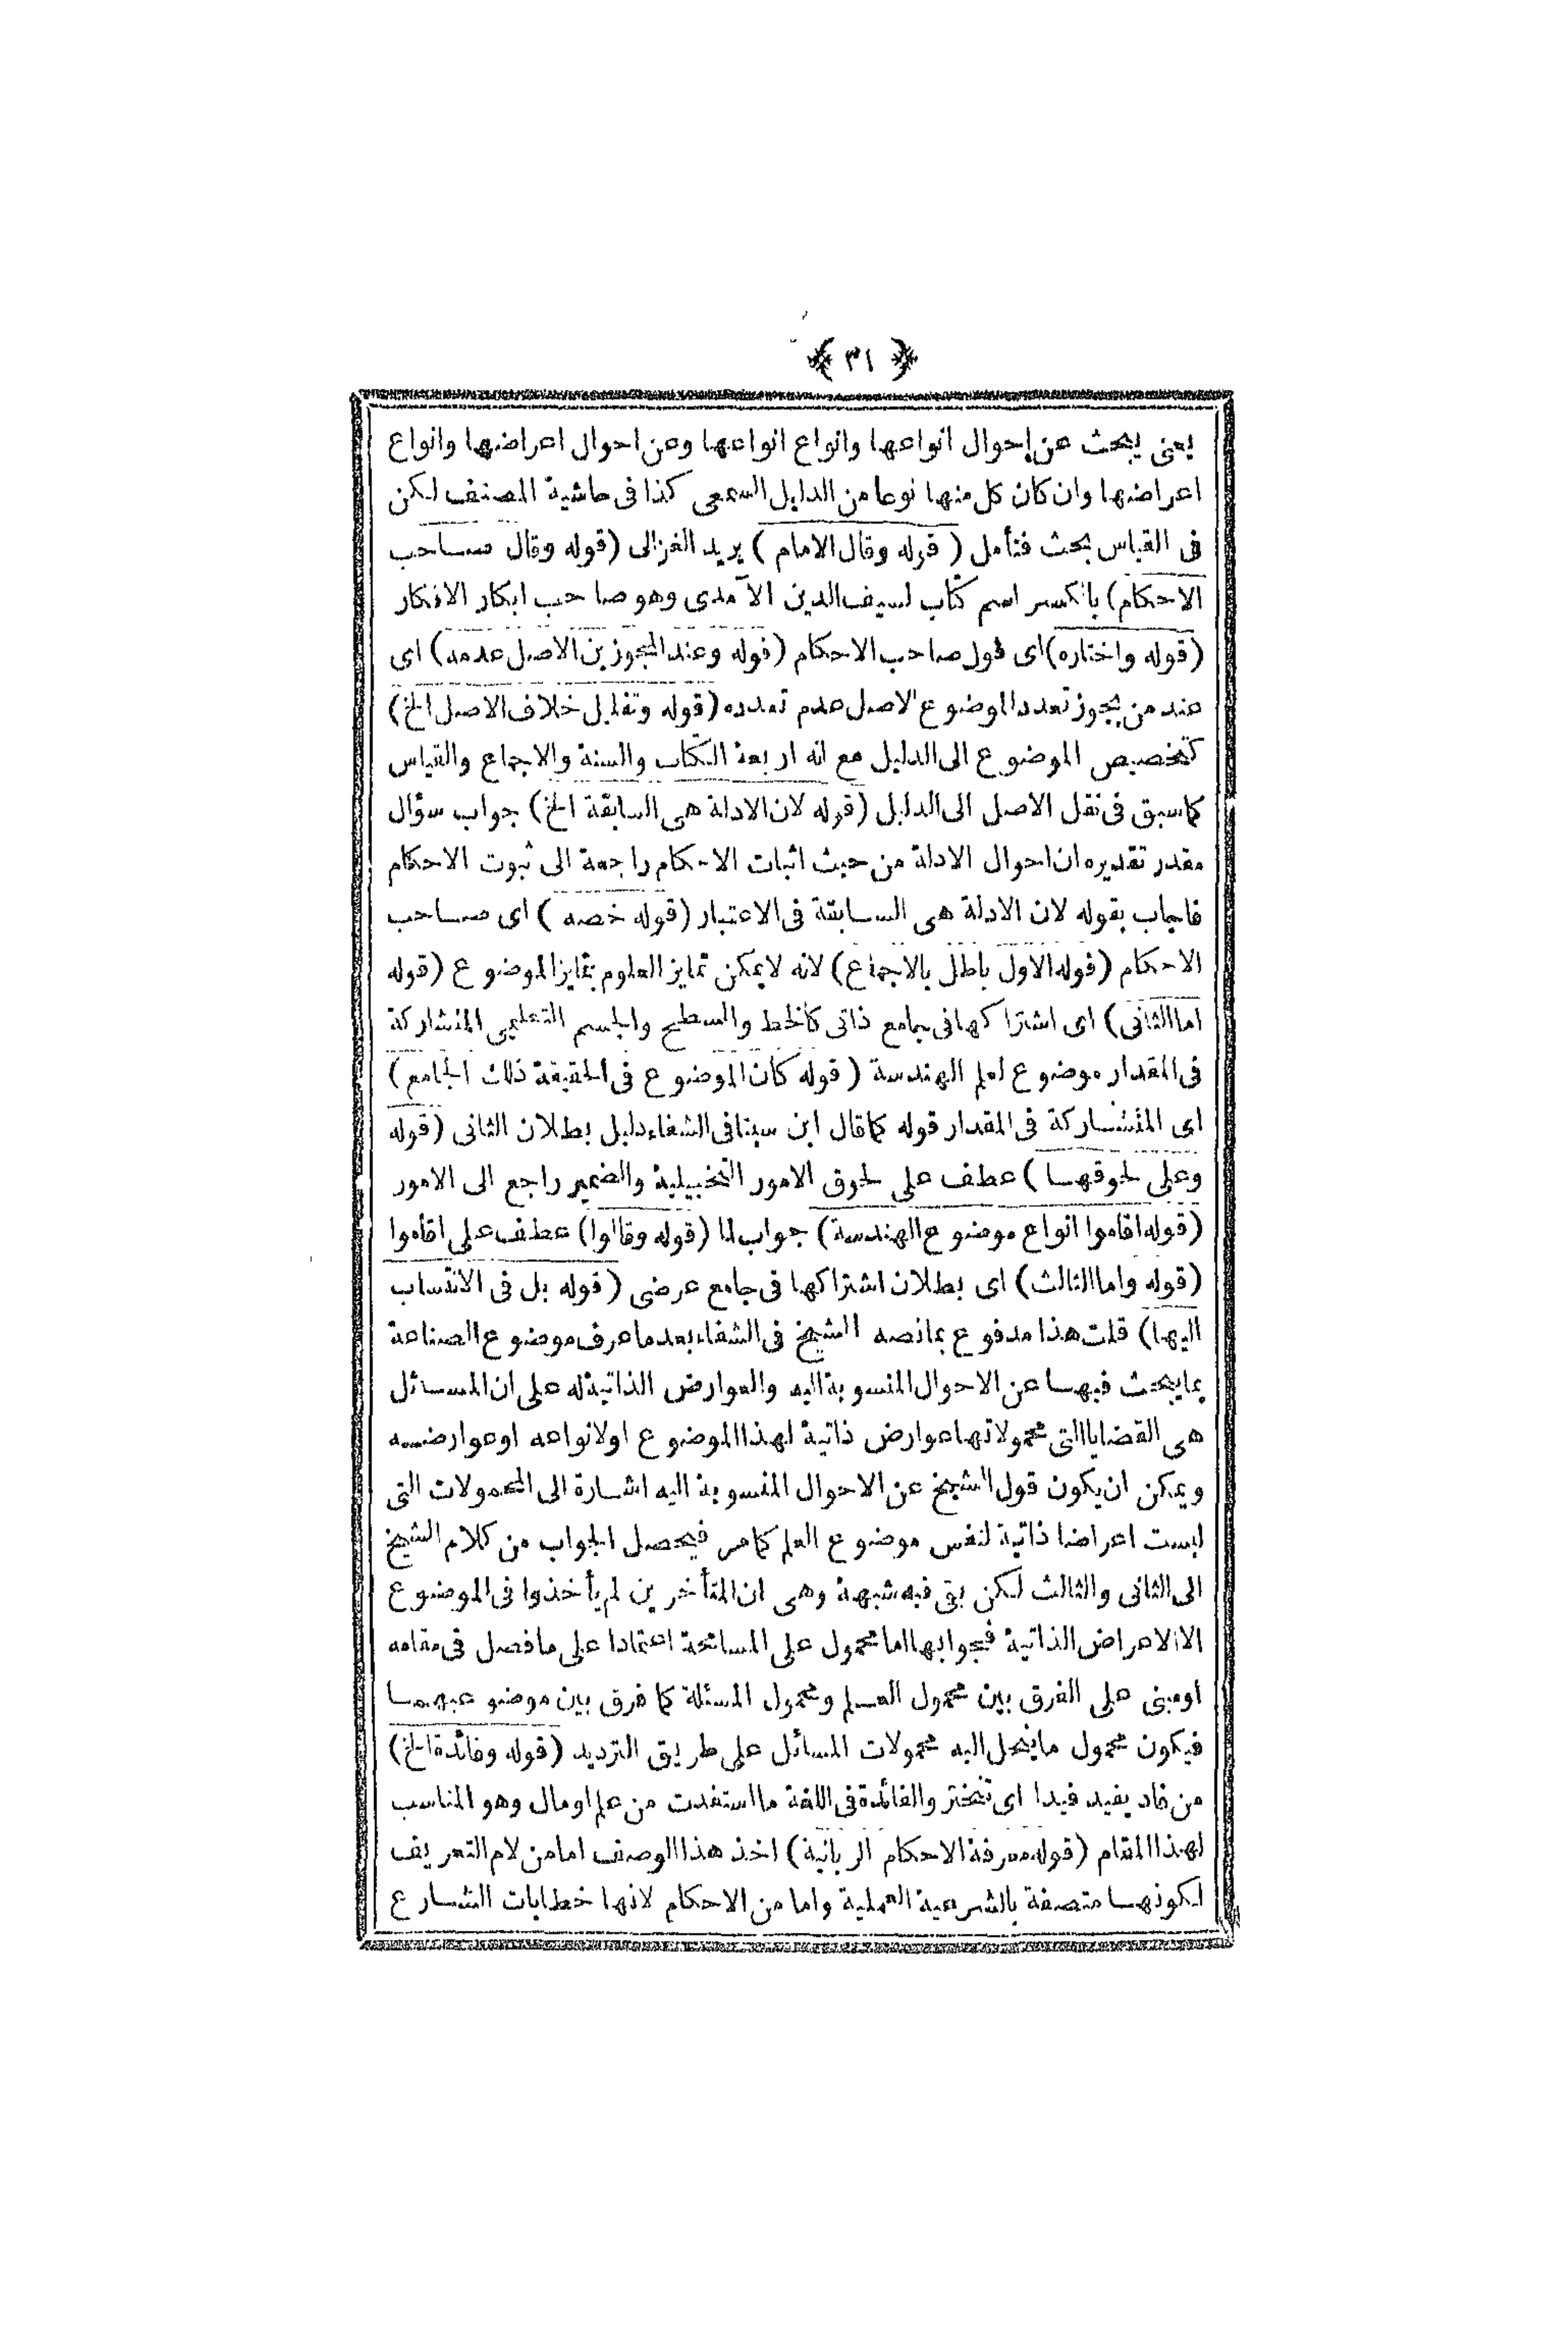 ﴿ ٣١ ﴾
يعنى يبحث عن احوال انواعها وانواع انواعها وعن احوال اعراضها وانواع
اعراضها وان كان كل منها نوعا من الدليل السمعى كذا فى حاشية المصنف لكن
فى القياس بحث فتأمل ( قوله وقال الامام ) يريد الغزالى (قوله وقال صاحب
الاحكام) بالكسر اسم كتاب لسيف الدين الآمدى وهو صاحب ابكار الافكار
(قوله واختاره) اى قول صاحب الاحكام (قوله وعند المجوزين الاصل عدمه) اى
عند من يجوز تعدد الموضوع الاصل عدم تعدده (قوله وتقليل خلاف الاصل الخ)
كتخصيص الموضوع الى الدليل مع انه اربعة الكتاب والسنة والاجماع والقياس
كما سبق فى نقل الاصل الى الدليل (قوله لان الادلة هى السابقة الخ) جواب سؤال
مقدر تقديره ان احوال الادلة من حيث اثبات الاحكام راجعة الى ثبوت الاحكام
فاجاب بقوله لان الادلة هى السابقة فى الاعتبار (قوله خصه ) اى صاحب
الاحكام (قوله الاول باطل بالاجماع) لانه لايمكن تمايز العلوم بتمايز الموضوع (قوله
اما الثانى) اى اشتراكها فى جامع ذاتى كالخط والسطح والجسم التعليمى المتشاركة
فى المقدار موضوع لعلم الهندسة ( قوله كان الموضوع فى الحقيقة ذلك الجامع )
اى المتشاركة فى المقدار قوله كما قال ابن سينا فى الشفاء دليل بطلان الثانى (قوله
وعلى لحوقها ) عطف على لحوق الامور التخييلية والضمير راجع الى الامور
(قوله اقاموا انواع موضوع الهندسة) جواب لما (قوله وقالوا) عطف على اقاموا
(قوله واما الثالث) اى بطلان اشتراكها فى جامع عرضى (قوله بل فى الانتساب
اليها) قلت هذا مدفوع بما نصه الشيخ فى الشفاء بعد ما عرف موضوع الصناعة
بما يبحث فيها عن الاحوال المنسوبة اليه والعوارض الذاتية له على ان المسائل
هى القضايا التى محمولاتها عوارض ذاتية لهذا الموضوع اولانواعه اوعوارضه
ويمكن ان يكون قول الشيخ عن الاحوال المنسوبة اليه اشارة الى المحمولات التى
ليست اعراضا ذاتية لنفس موضوع العلم كما مر فيحصل الجواب من كلام الشيخ
الى الثانى والثالث لكن بقى فيه شبهة وهى ان المتأخرين لم يأخذوا فى الموضوع
الا الاعراض الذاتية فجوابها اما محمول على المسامحة اعتمادا على ما فصل فى مقامه
اومبنى على الفرق بين محمول العلم ومحمول المسئلة كما فرق بين موضوعيهما
فيكون محمول ما ينحل اليه محمولات المسائل على طريق الترديد (قوله وفائدة الخ)
من فاد يفيد فيدا اى تبختر والفائدة فى اللغة ما استفدت من علم اومال وهو المناسب
لهذا المقام (قوله معرفة الاحكام الربانية) اخذ هذا الوصف اما من لام التعريف
لكونها متصفة بالشرعية العملية واما من الاحكام لانها خطابات الشارع